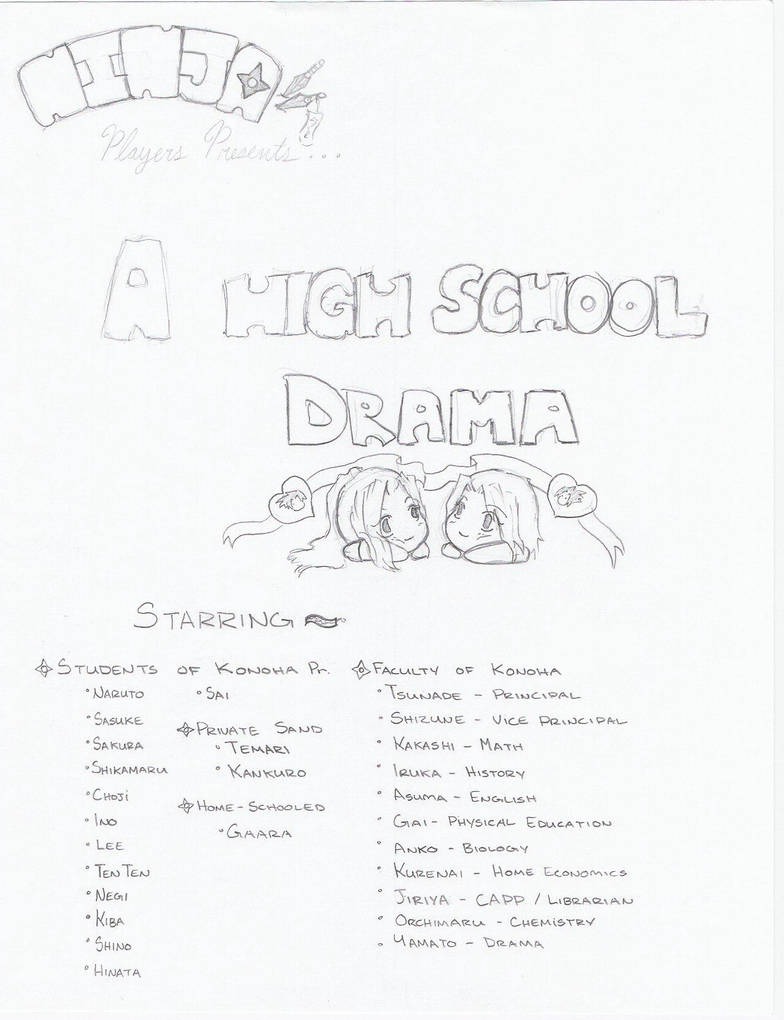 NINJA
Players Presents...
A HIGH SCHOOL
DRAMA
STARRING
STUDENTS OF KONOHA Pr.
NARUTO
SASUKE
SAKURA
SHIKAMARU
CHOJI
INO
LEE
TENTEN
NEGI
KIBA
SHINO
HINATA
SAI
PRIVATE SAND
TEMARI
KANKURO
HOME-SCHOOLED
GAARA
FACULTY OF KONOHA
TSUNADE - PRINCIPAL
SHIZUNE - VICE PRINCIPAL
KAKASHI - MATH
IRUKA - HISTORY
ASUMA - ENGLISH
GAI - PHYSICAL EDUCATION
ANKO - BIOLOGY
KURENAI - HOME ECONOMICS
JIRIYA - CAPP / LIBRARIAN
ORCHIMARU - CHEMISTRY
YAMATO - DRAMA